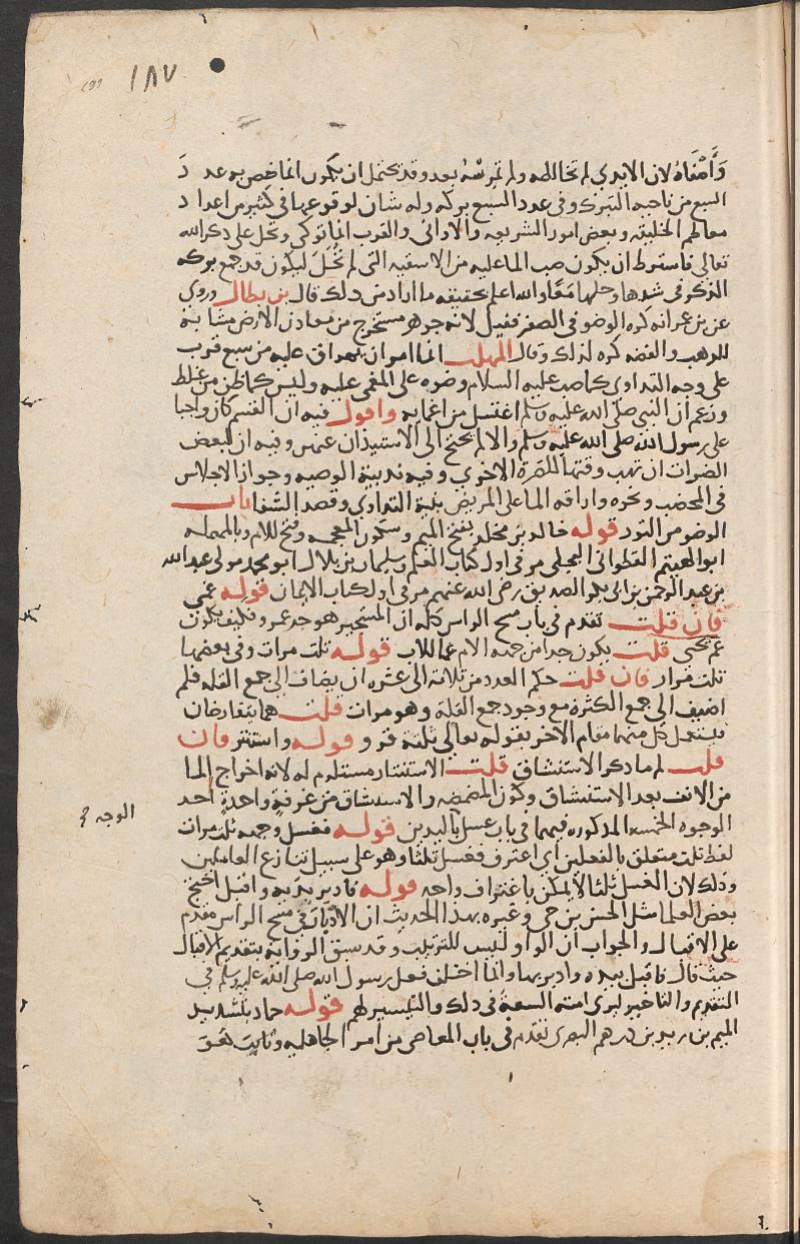 ١٨٧
وأصفاه لان الايدي لم تخالطه ولم تمرسه بعد وقد يحتمل ان يكون انما خص به عدد
السبع من ناحيه التبرك وفي عدد السبع بركه وله شان لوقوعها في كثير من اعداد
معالم الخليقه وبعض امور الشريعه والاواني والقرب انما توكى وتحل على ذكر الله
تعالى فاشترط ان يكون صب الما عليه من الاسقيه التي لم تحلل ليكون قد جمع بركه
الذكر في شدها وحلها معا والله اعلم بحقيقه ما اراد من ذلك قال بن بطال وروي
عن بن عمر انه كره الوضو في الصفر فقيل لانه جوهر مستخرج من معادن الارض مشابه
للذهب والفضه كره لذلك وقال المهلب انما امر ان يهراق عليه من سبع قرب
على وجه التداوي كما صب عليه السلام وضوه على المغمى عليه وليس كما ظن من غلط
وزعم ان النبي صلى الله عليه وسلم اغتسل من اغمايه واقول فيه ان القسم كان واجبا
على رسول الله صلى الله عليه وسلم والا لم يحتج الى الاستيذان عنهن وفيه ان لبعض
الضرات ان تهب وقتها للضرة الاخرى وفيه ندبية الوصيه وجواز الاجلاس
في المخضب ونحوه واراقه الما على المريض بنية التداوي وقصد الشفا باب
الوضو من التور قوله خالد بن مخلد بفتح الميم وسكون المعجمه وفتح اللام وبالمهمله
ابو الهيثم القطواني البجلي مر في اول كتاب العلم وسليمان بن بلال ابو محمد مولى عبد الله
بن عبد الرحمن بن ابي بكر الصديق رضي الله عنهم مر في اول كتاب الايمان قوله عمي
فان قلت تقدم في باب مسح الراس كله ان المستخبر هو جد عمرو فكيف يكون
عم يحيى قلت يكون جدا من جهه الام عما للاب قوله ثلث مرات وفي بعضها
ثلث مرار فان قلت حكم العدد من ثلاثة الى عشره ان يضاف الى جمع القله فلم
اضيف الى جمع الكثرة مع وجود جمع القلة وهو مرات قلت هما يتقارضان
فيستعمل كل منهما مقام الاخر بقوله تعالى ثلثة قروء قوله واستنثر فان
قلت لم ما ذكر الاستنشاق قلت الاستنثار مستلزم له لانه اخراج الما
من الانف بعد الاستنشاق وكون المضمضه والاستنشاق من غرفة واحدة احد
الوجوه الخمسه المذكوره فيهما في باب غسل باليدين قوله فغسل وجهه ثلث مرات
الوجه
لفظ ثلث متعلق بالفعلين اي اغترف فغسل ثلثا وهو على سبيل تنازع العاملين
وذلك لان الغسل ثلثا لا يمكن باغتراف واحد قوله فادبر بيديه واقبل احتج
بعض العلما مثل الحسن بن حي وغيره بهذا الحديث ان الادبار في مسح الراس مقدم
على الاقبال والجواب ان الواو ليس للترتيب وقد سبق الروايه بتقديم الاقبال
حيث قال فاقبل بيده وادبر بها وانما اختلف فعل رسول الله صلى الله عليه وسلم في
التقديم والتاخير ليرى امته السعة في ذلك والتيسير لهم قوله حماد بتشديد
الميم بن زيد بن درهم البصري تقدم في باب المعاصي من امر الجاهليه وثابت بفتح